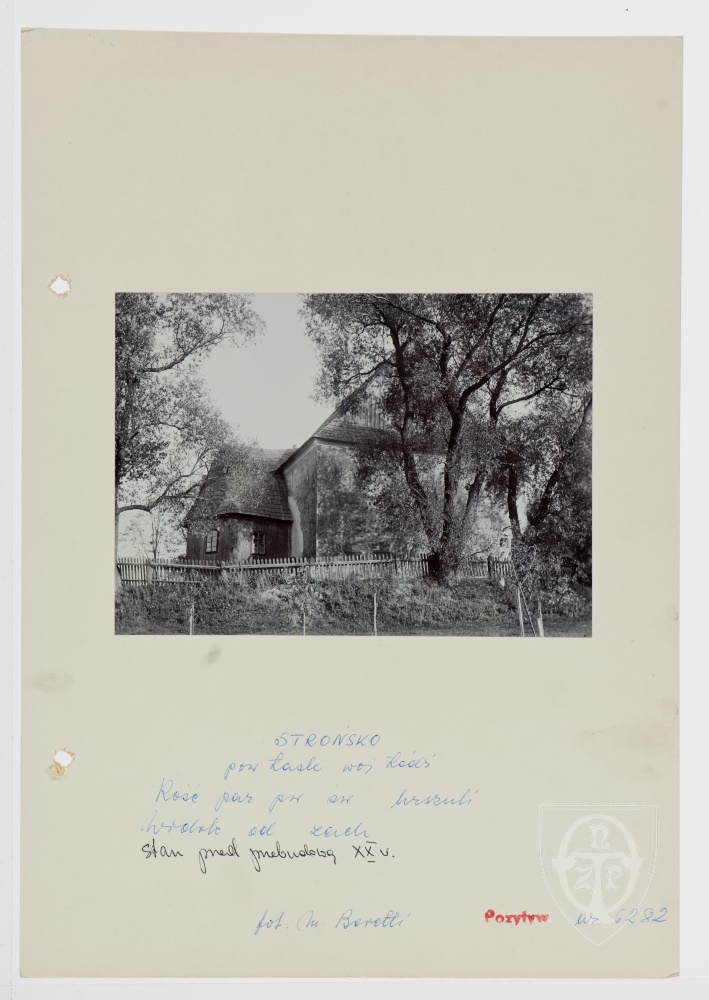 STROŃSKO
pow Łask woj Łódź
Kość par pw św Urszuli
Widok od zach
Stan przed przebudową XX w.
fot. M. Beretti
Pozytyw nr 6282
NTZP